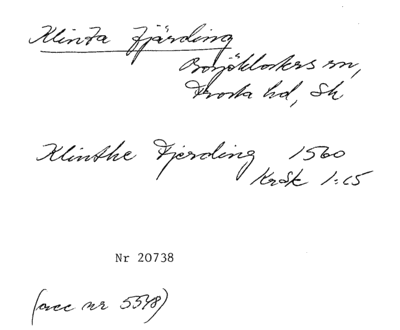 Klinta fjärding
Bosjöklosters sn,
Frosta hd, Sk
Klinthe Fjerding 1560
KrSk 1:65
Nr 20738
(acc nr 5548)